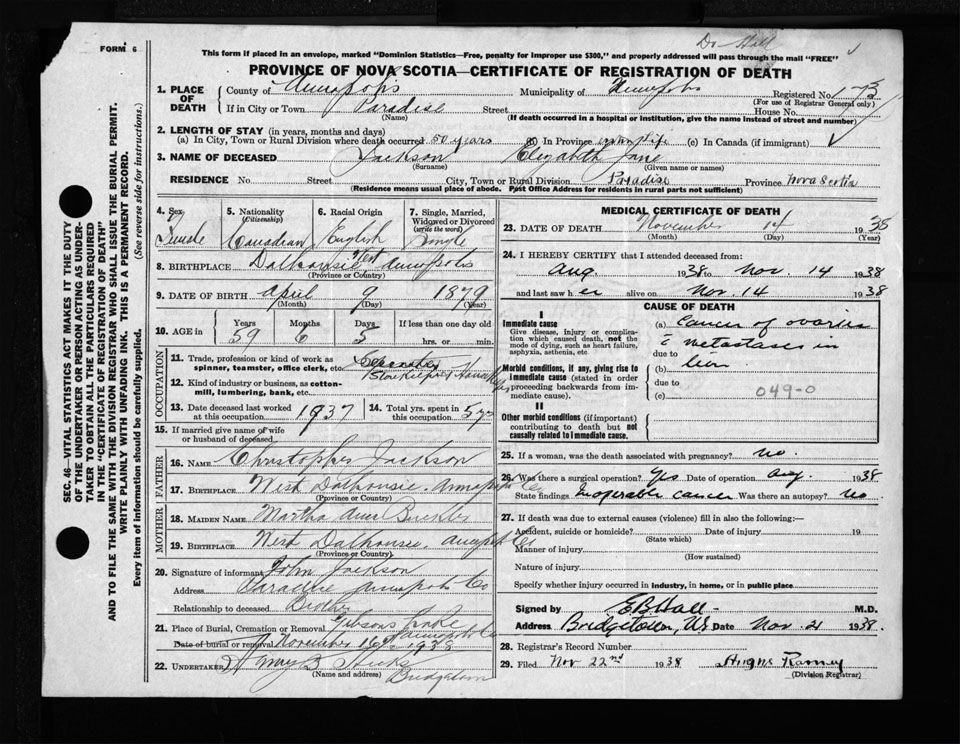 Dr Hall
FORM 6
This form if placed in an envelope, marked "Dominion Statistics—Free, penalty for improper use $300," and properly addressed will pass through the mail "FREE"
PROVINCE OF NOVA SCOTIA—CERTIFICATE OF REGISTRATION OF DEATH
1. PLACE OF DEATH
County of Annapolis Municipality of Annapolis Registered No.
(For use of Registrar General only)
If in City or Town Paradise Street House No.
(Name) (If death occurred in a hospital or institution, give the name instead of street and number)
2. LENGTH OF STAY (in years, months and days)
(a) In City, Town or Rural Division where death occurred 50 years (b) In Province entire life (c) In Canada (if immigrant)
3. NAME OF DECEASED Jackson Elizabeth Jane
(Surname) (Given name or names)
RESIDENCE No. Street City, Town or Rural Division Paradise Province Nova Scotia
(Residence means usual place of abode. Post Office Address for residents in rural parts not sufficient)
4. Sex 5. Nationality (Citizenship) 6. Racial Origin 7. Single, Married, Widowed or Divorced (write the word)
Female Canadian English Single
8. BIRTHPLACE Dalhousie West Annapolis
(Province or Country)
9. DATE OF BIRTH April 9 1879
(Month) (Day) (Year)
10. AGE in Years Months Days If less than one day old
59 6 5 hrs. or min.
OCCUPATION
11. Trade, profession or kind of work as spinner, teamster, office clerk, etc.
12. Kind of industry or business, as cotton-mill, lumbering, bank, etc.
13. Date deceased last worked at this occupation 1937 14. Total yrs. spent in this occupation
15. If married give name of wife or husband of deceased
FATHER
16. NAME Christopher Jackson
17. BIRTHPLACE West Dalhousie Annapolis Co
(Province or Country)
MOTHER
18. MAIDEN NAME Martha Ann Buckler
19. BIRTHPLACE West Dalhousie. Annapolis Co
(Province or Country)
20. Signature of informant John Jackson
Address Paradise Annapolis Co
Relationship to deceased Brother
21. Place of Burial, Cremation or Removal Gibsons Lake Annapolis
Date of burial or removal November 16 1938
22. UNDERTAKER Hicks
(Name and address) Bridgetown
MEDICAL CERTIFICATE OF DEATH
23. DATE OF DEATH November 14 1938
(Month) (Day) (Year)
24. I HEREBY CERTIFY that I attended deceased from:
Aug. 1938 to Nov. 14 1938
and last saw h er alive on Nov. 14 1938
CAUSE OF DEATH
I
Immediate cause
Give disease, injury or complication which caused death, not the mode of dying, such as heart failure, asphyxia, asthenia, etc.
Morbid conditions, if any, giving rise to immediate cause (stated in order proceeding backwards from immediate cause).
II
Other morbid conditions (if important) contributing to death but not causally related to immediate cause.
(a) Cancer of ovaries
c̄ metastases in
due to
(b) liver.
due to
(c) 049-0
25. If a woman, was the death associated with pregnancy? no.
26. Was there a surgical operation? Yes Date of operation Aug 1938
State findings Inoperable cancer Was there an autopsy? no
27. If death was due to external causes (violence) fill in also the following:—
Accident, suicide or homicide? Date of injury 19
(State which)
Manner of injury
(How sustained)
Nature of injury
Specify whether injured in industry, in home, or in public place
Signed by E B Hall M.D.
Address Bridgetown, NS Date Nov. 21 1938.
28. Registrar's Record Number
29. Filed Nov 22nd 1938
(Division Registrar)
SEC. 46—VITAL STATISTICS ACT MAKES IT THE DUTY OF THE UNDERTAKER OR PERSON ACTING AS UNDERTAKER TO OBTAIN ALL THE PARTICULARS REQUIRED IN THE "CERTIFICATE OF REGISTRATION OF DEATH"
AND TO FILE THE SAME WITH THE DIVISION REGISTRAR WHO SHALL ISSUE THE BURIAL PERMIT.
WRITE PLAINLY WITH UNFADING INK. THIS IS A PERMANENT RECORD.
Every item of information should be carefully supplied. (See reverse side for instructions.)